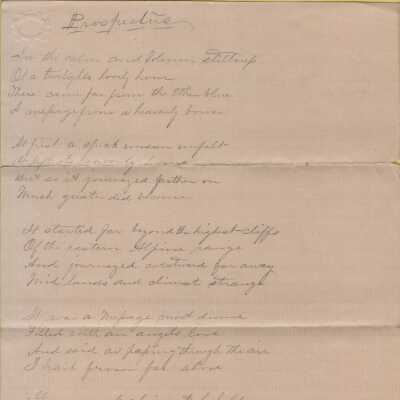 Prospectus
In the calm and Solemn stillness
Of a twilights lovely hour
There came far from the Ether blue
A message from a heavenly bower
At first a speck unseen unfelt
But as it journeyed farther on
Much greater did become
It started far beyond the highest cliffs
Of the eastern Alpine range
And journeyed westward far away
Mid lands and climes strange
It was a Message most divine
Filled with an angels love
And said as passing through the air
I hail from far above